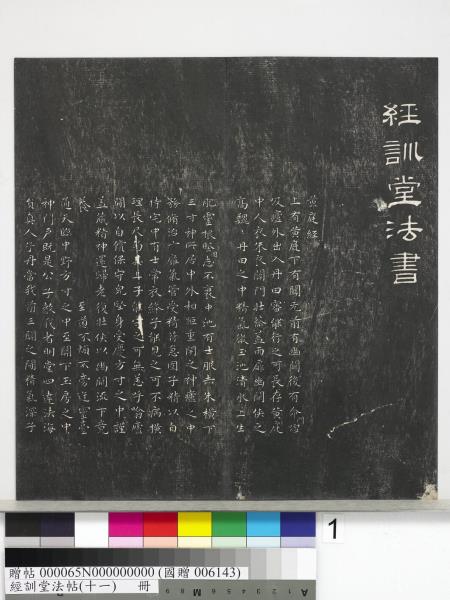 經訓堂法書
黃庭經
上有黃庭下有關元前有幽關後有命門
噓吸廬外出入丹田審能行之可長存黃庭
中人衣朱衣關門壯籥蓋兩扉幽關俠之
高魏魏丹田之中精氣微玉池清水上生
肥靈根堅志不衰中池有士服赤朱橫下
三寸神所居中外相距重閉之神廬之中
務脩治玄廱氣管受精符急固子精以自
持宅中有士常衣絳子能見之可不病橫
理長尺約其上子能守之可無恙子
關以自償保守完堅身受慶方寸之中謹
蓋藏精神還歸老復壯俠以幽關流下竟
養
至道不煩不旁迕靈臺
通天臨中野方寸之中至關下玉房之中
神門戶既是公子教我者明堂四達法海
員真人子丹當我前三關之間精氣深子
1
贈帖 000065N000000000 (國贈 006143)
經訓堂法帖(十一) 冊